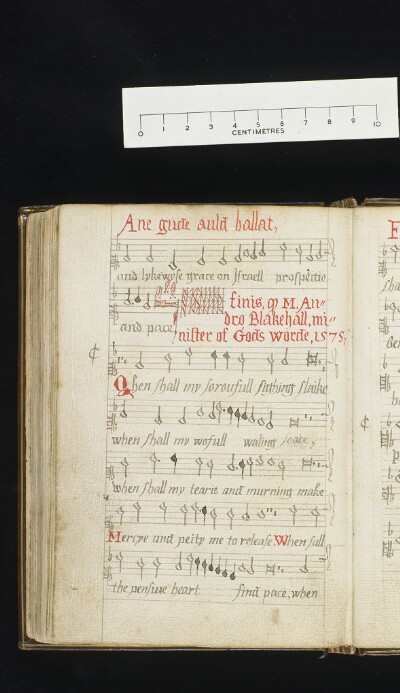 0 1 2 3 4 5 6 7 8 9 10
CENTIMETRES
Ane gude auld ballat,
and lykewyse grace on Israell prosperitie
and pace,
finis, q M. An"
dro Blakehall, mi"
nister of Gods worde, 1575,
Qhen shall my sorowfull sithing slaike
when shall my wofull waling
when shall my tearis and murning make
Mercye and peity me to release. When sall
the pensiue heart find pace, when